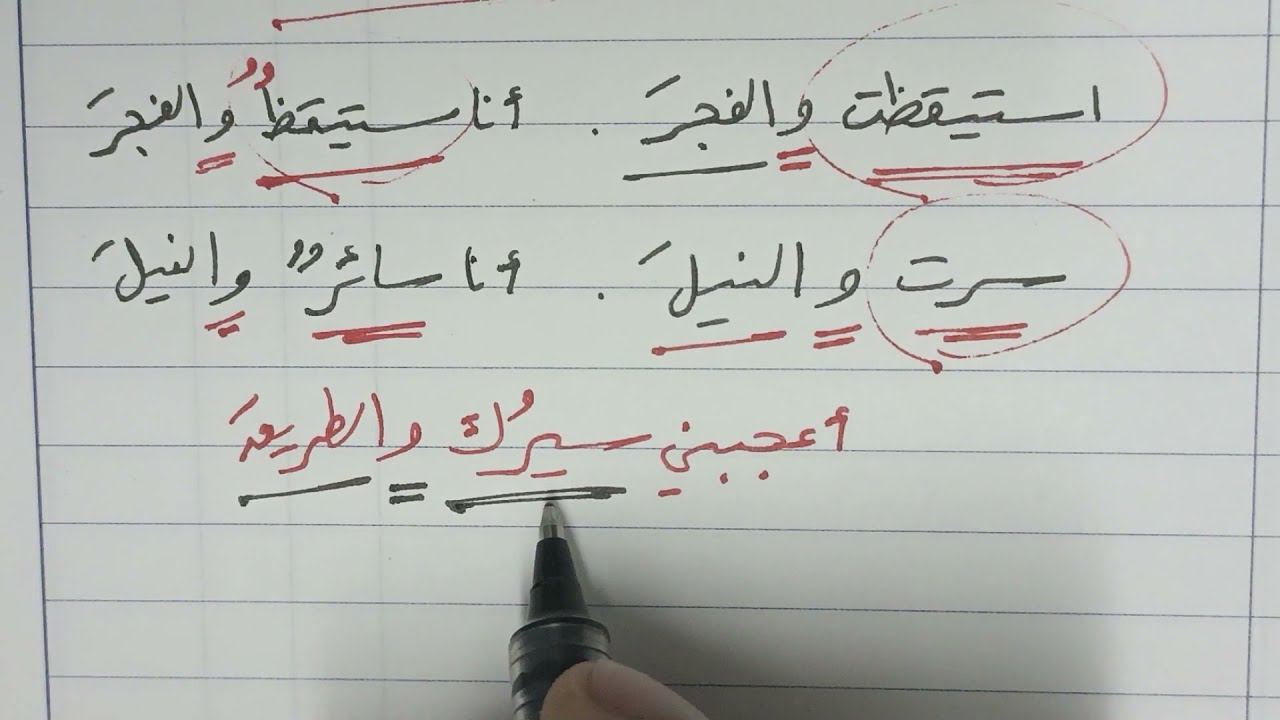 استيقظت والفجرَ . أنا ستيقظٌ والفجرَ
سرت والنيلَ . أنا سائرٌ والنيلَ
أعجبني سيرُك والطريقَ